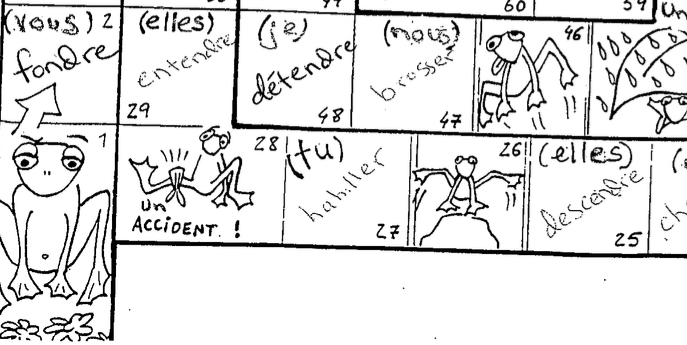 60
59
un
(vous) 2
fondre
(elles)
entendre
29
(je)
détendre
48
(nous)
brosser
47
46
1
28
un
ACCIDENT !
(tu)
habiller
27
26
(elles)
descendre
25